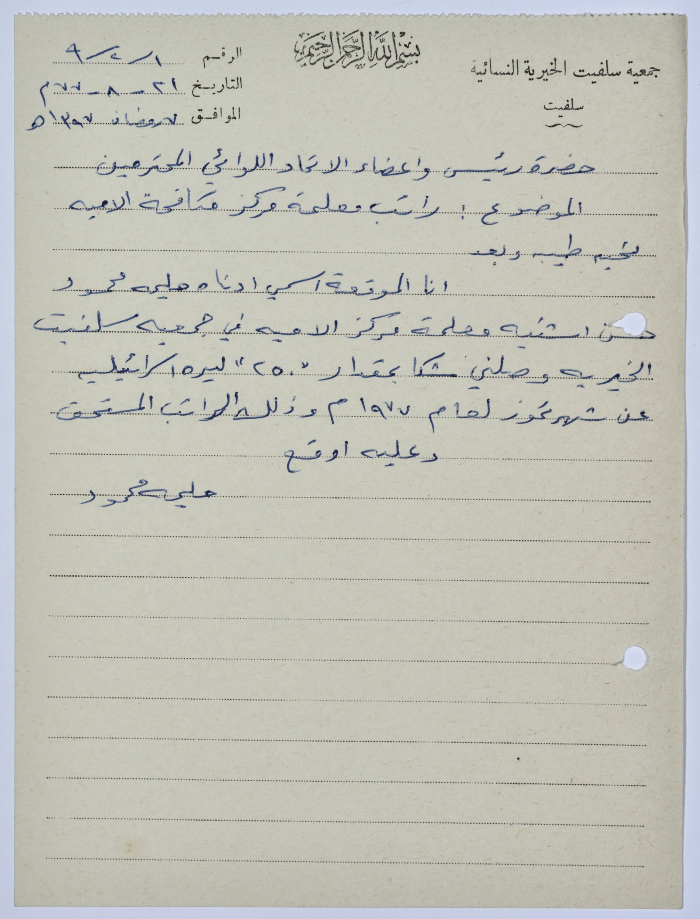 بسم الله الرحمن الرحيم
جمعية سلفيت الخيرية النسائية
سلفيت
الرقم ٩/٢/١
التاريخ ٢١ - ٨ - ٧٧ م
الموافق ٧ رمضان ١٣٩٧ هـ
حضرة رئيس واعضاء الاتحاد اللوائي المحترمين
الموضوع : راتب معلمة مركز مكافحة الاميه
تحيه طيبه وبعد
انا الموقعة اسمي ادناه حليمه محمود
حسن اشتيه معلمة مركز الاميه في جمعيه سلفيت
الخيريه وصلني شكا بمقدار "٢٥٠" ليره اسرائيليه
عن شهر تموز لعام ١٩٧٧ م وذلك الراتب المستحق
وعليه اوقع
حليمه محمود